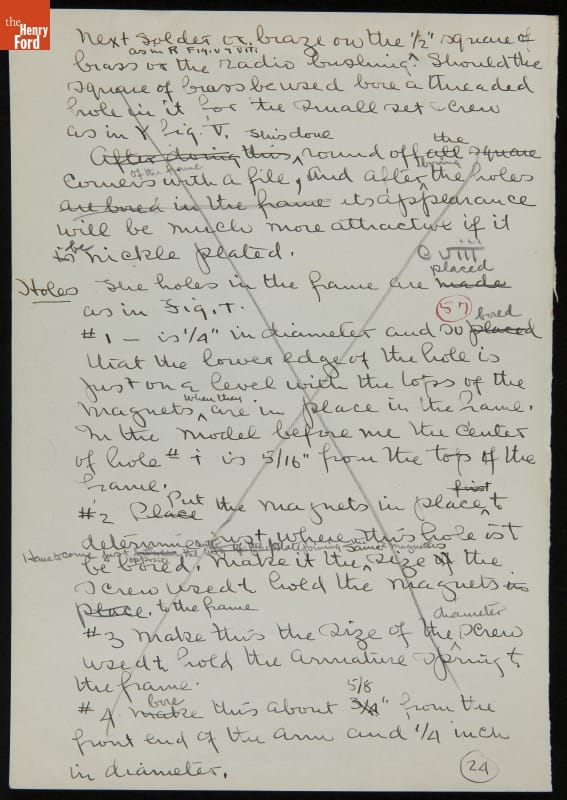 the
Henry
Ford
Next solder or braze on the 1/2" square of
as in R Fig. V & VIII
brass or the radio bushing. Should the
square of brass be used bore a threaded
hole in it for the small set screw
as in Y Fig. V.
is done
After doing this, round off all square
the
of the frame
corners with a file, and after the holes
are bored in the frame its appearance
will be much more attractive if it
is nickle plated.
be
C VIII
placed
Holes The holes in the frame are made
as in Fig. T.
57
bored
#1 - is 1/4" in diameter and so placed
that the lower edge of the hole is
just on a level with the tops of the
when they
magnets are in place in the frame.
In the model before me the center
of hole #1 is 5/16" from the top of the
frame.
Put
first
#2 Place the magnets in place, &
determine just where this hole is to
Have it come just
opposite
the
of the plate joining
same
magnets
be bored. Make it the size of the
screw used to hold the magnets in
place. to the frame
diameter
#3 Make this the size of the screw
used to hold the armature spring to
the frame.
bore
5/8
#4 make this about 3/4" from the
front end of the arm and 1/4 inch
in diameter.
24